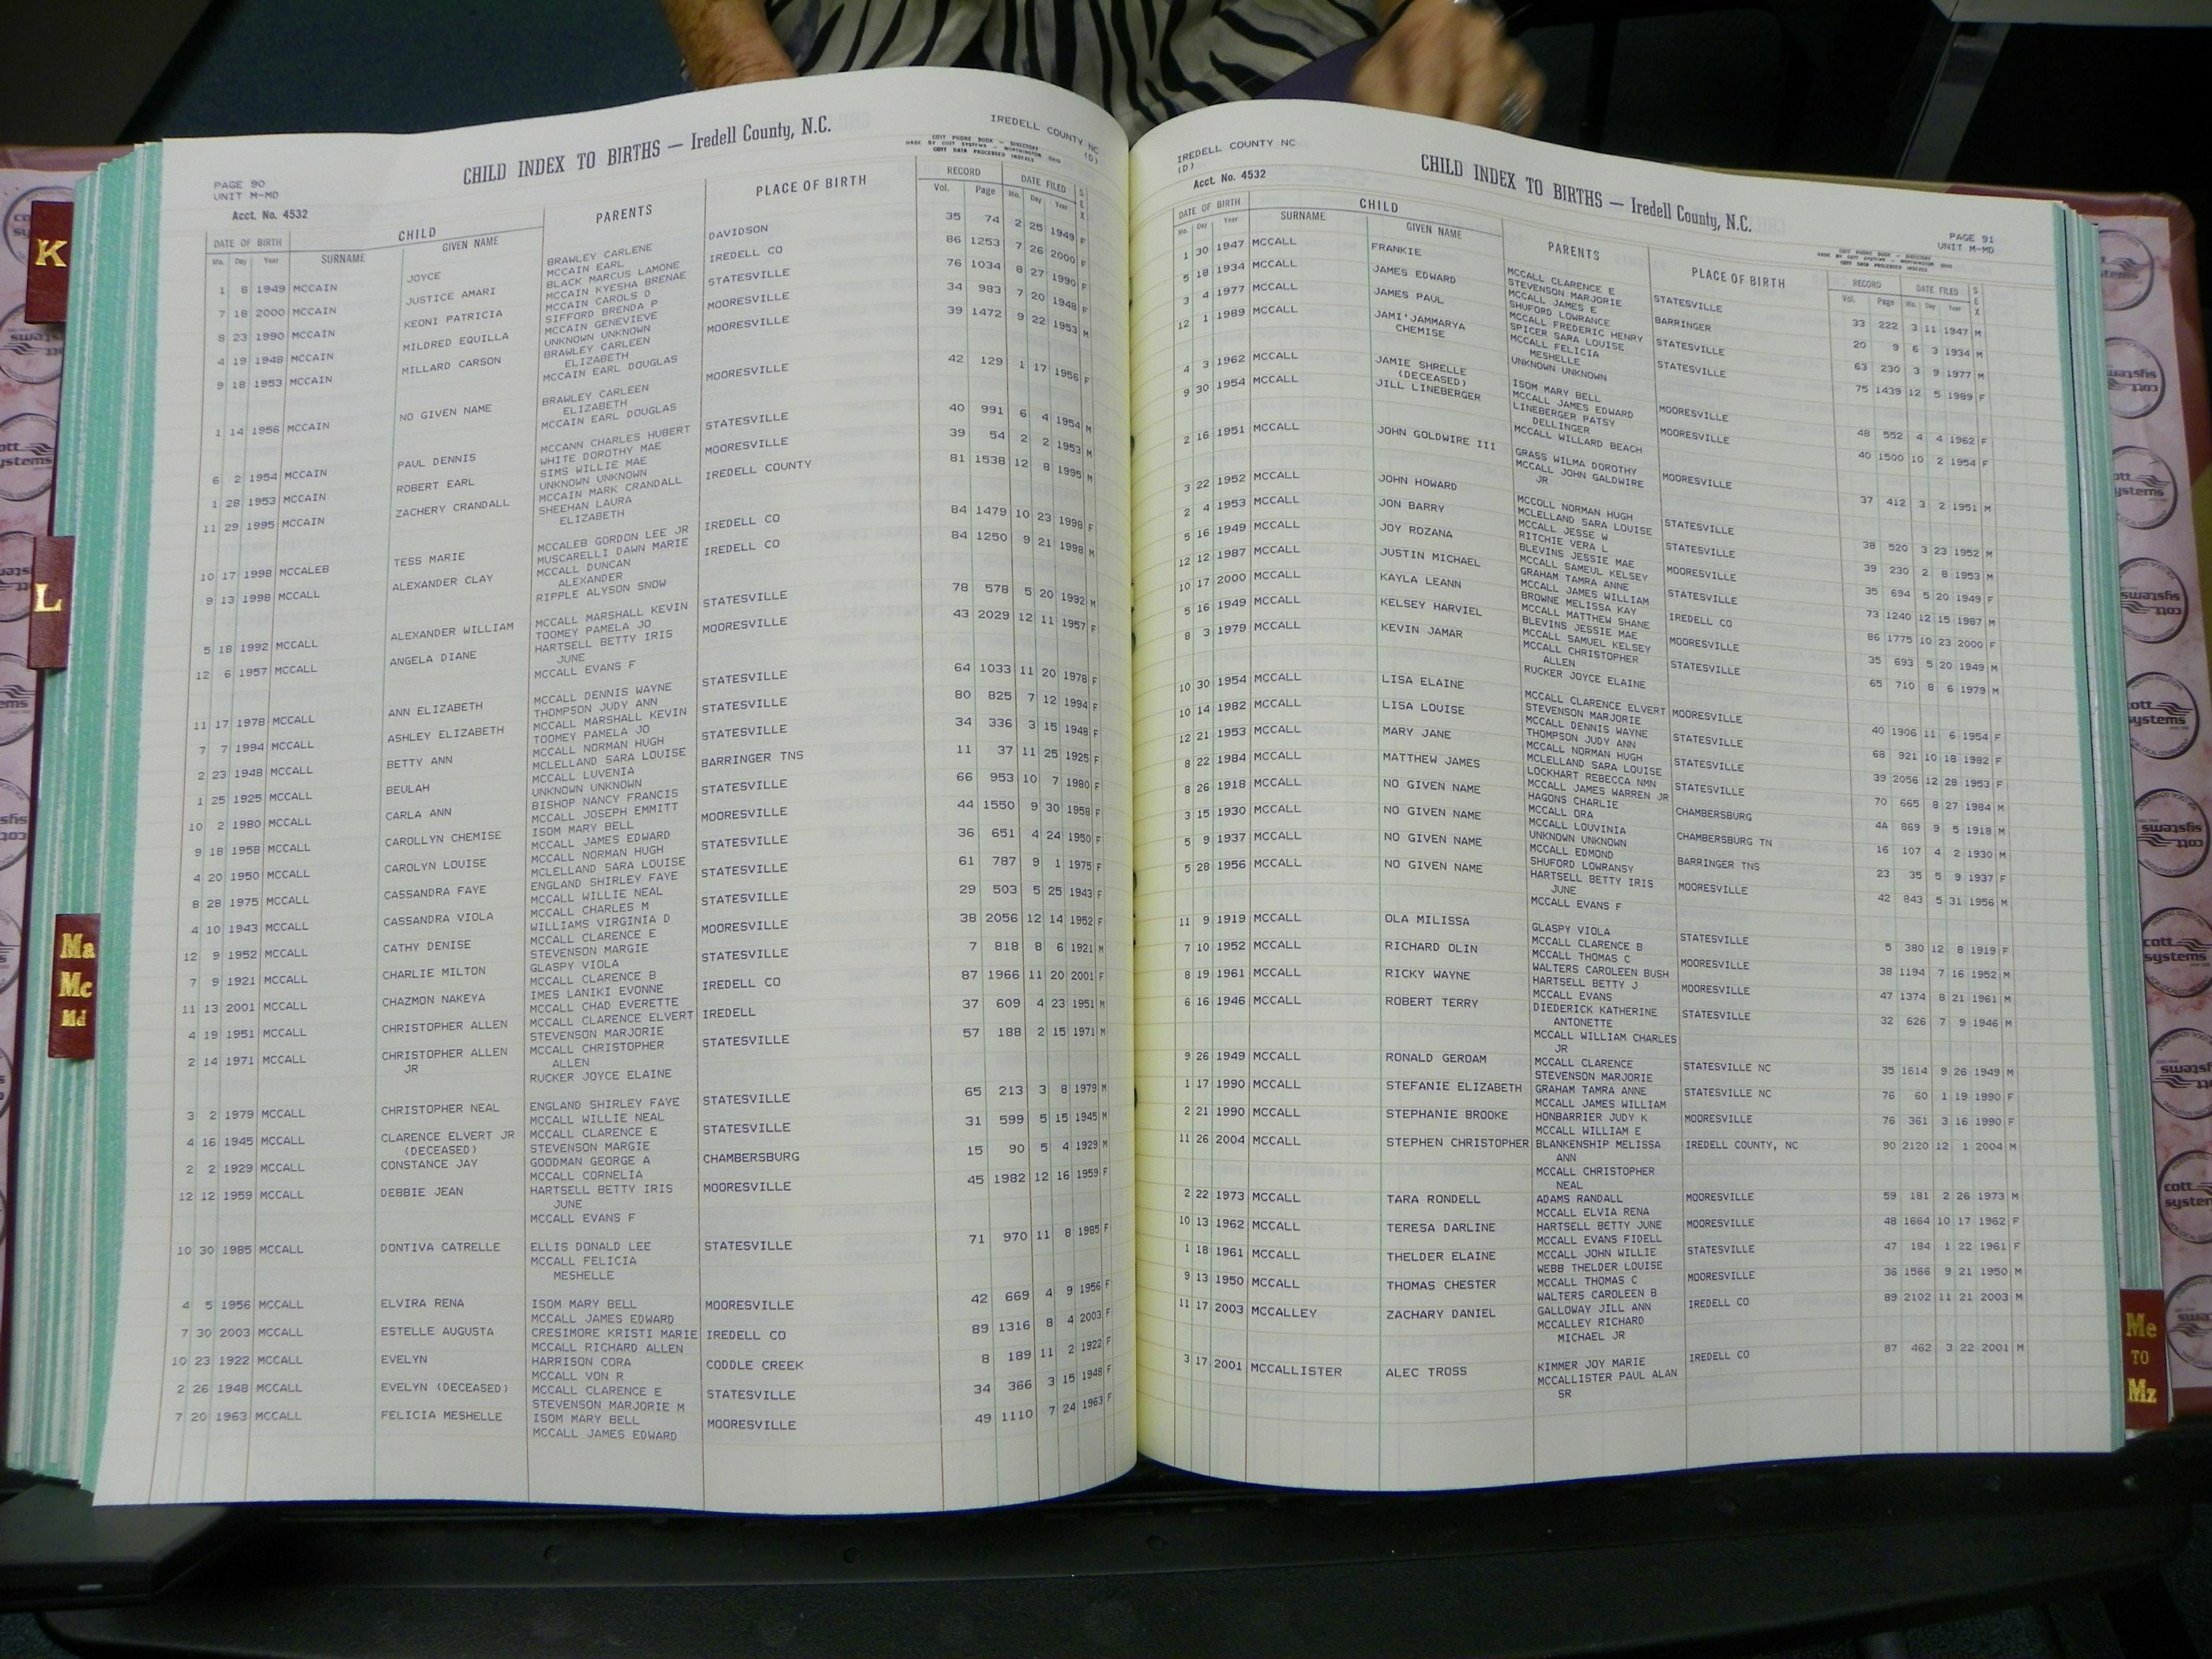 K
L
Ma
Mc
Md
Me
TO
Mz
cott
systems
IREDELL COUNTY NC
(D)
CHILD INDEX TO BIRTHS — Iredell County, N.C.
COTT PHONE BOOK - DIRECTORY
MADE BY COTT SYSTEMS - WORTHINGTON, OHIO
COTT DATA PROCESSED INDEXES
PAGE 90
UNIT M-MD
Acct. No. 4532
DATE OF BIRTH CHILD PARENTS PLACE OF BIRTH RECORD DATE FILED SEX
Mo. Day Year SURNAME GIVEN NAME Vol. Page Mo. Day Year
1 8 1949 MCCAIN JOYCE BRAWLEY CARLENE DAVIDSON 35 74 2 25 1949 F
MCCAIN EARL
7 18 2000 MCCAIN JUSTICE AMARI BLACK MARCUS LAMONE IREDELL CO 86 1253 7 26 2000 F
MCCAIN KYESHA BRENAE
8 23 1990 MCCAIN KEONI PATRICIA MCCAIN CAROLS D STATESVILLE 76 1034 8 27 1990 F
SIFFORD BRENDA P
4 19 1948 MCCAIN MILDRED EQUILLA MCCAIN GENEVIEVE MOORESVILLE 34 983 7 20 1948 F
UNKNOWN UNKNOWN
9 18 1953 MCCAIN MILLARD CARSON BRAWLEY CARLEEN MOORESVILLE 39 1472 9 22 1953 M
ELIZABETH
MCCAIN EARL DOUGLAS
1 14 1956 MCCAIN NO GIVEN NAME BRAWLEY CARLEEN MOORESVILLE 42 129 1 17 1956 F
ELIZABETH
MCCAIN EARL DOUGLAS
6 2 1954 MCCAIN PAUL DENNIS MCCANN CHARLES HUBERT STATESVILLE 40 991 6 4 1954 M
WHITE DOROTHY MAE
1 28 1953 MCCAIN ROBERT EARL SIMS WILLIE MAE MOORESVILLE 39 54 2 2 1953 M
UNKNOWN UNKNOWN
11 29 1995 MCCAIN ZACHERY CRANDALL MCCAIN MARK CRANDALL IREDELL COUNTY 81 1538 12 8 1995 M
SHEEHAN LAURA
ELIZABETH
10 17 1998 MCCALEB TESS MARIE MCCALEB GORDON LEE JR IREDELL CO 84 1479 10 23 1998 F
MUSCARELLI DAWN MARIE
9 13 1998 MCCALL ALEXANDER CLAY MCCALL DUNCAN IREDELL CO 84 1250 9 21 1998 M
ALEXANDER
RIPPLE ALYSON SNOW
5 18 1992 MCCALL ALEXANDER WILLIAM MCCALL MARSHALL KEVIN STATESVILLE 78 578 5 20 1992 M
TOOMEY PAMELA JO
12 6 1957 MCCALL ANGELA DIANE HARTSELL BETTY IRIS MOORESVILLE 43 2029 12 11 1957 F
JUNE
MCCALL EVANS F
11 17 1978 MCCALL ANN ELIZABETH MCCALL DENNIS WAYNE STATESVILLE 64 1033 11 20 1978 F
THOMPSON JUDY ANN
7 7 1994 MCCALL ASHLEY ELIZABETH MCCALL MARSHALL KEVIN STATESVILLE 80 825 7 12 1994 F
TOOMEY PAMELA JO
2 23 1948 MCCALL BETTY ANN MCCALL NORMAN HUGH STATESVILLE 34 336 3 15 1948 F
MCLELLAND SARA LOUISE
1 25 1925 MCCALL BEULAH MCCALL LUVENIA BARRINGER TNS 11 37 11 25 1925 F
UNKNOWN UNKNOWN
10 2 1980 MCCALL CARLA ANN BISHOP NANCY FRANCIS STATESVILLE 66 953 10 7 1980 F
MCCALL JOSEPH EMMITT
9 18 1958 MCCALL CAROLLYN CHEMISE ISOM MARY BELL MOORESVILLE 44 1550 9 30 1958 F
MCCALL JAMES EDWARD
4 20 1950 MCCALL CAROLYN LOUISE MCCALL NORMAN HUGH STATESVILLE 36 651 4 24 1950 F
MCLELLAND SARA LOUISE
8 28 1975 MCCALL CASSANDRA FAYE ENGLAND SHIRLEY FAYE STATESVILLE 61 787 9 1 1975 F
MCCALL WILLIE NEAL
4 10 1943 MCCALL CASSANDRA VIOLA MCCALL CHARLES M STATESVILLE 29 503 5 25 1943 F
WILLIAMS VIRGINIA D
12 9 1952 MCCALL CATHY DENISE MCCALL CLARENCE E MOORESVILLE 38 2056 12 14 1952 F
STEVENSON MARGIE
7 9 1921 MCCALL CHARLIE MILTON GLASPY VIOLA STATESVILLE 7 818 8 6 1921 M
MCCALL CLARENCE B
11 13 2001 MCCALL CHAZMON NAKEYA IMES LANIKI EVONNE IREDELL CO 87 1966 11 20 2001 F
MCCALL CHAD EVERETTE
4 19 1951 MCCALL CHRISTOPHER ALLEN MCCALL CLARENCE ELVERT IREDELL 37 609 4 23 1951 M
STEVENSON MARJORIE
2 14 1971 MCCALL CHRISTOPHER ALLEN MCCALL CHRISTOPHER STATESVILLE 57 188 2 15 1971 M
JR ALLEN
RUCKER JOYCE ELAINE
3 2 1979 MCCALL CHRISTOPHER NEAL ENGLAND SHIRLEY FAYE STATESVILLE 65 213 3 8 1979 M
MCCALL WILLIE NEAL
4 16 1945 MCCALL CLARENCE ELVERT JR MCCALL CLARENCE E STATESVILLE 31 599 5 15 1945 M
(DECEASED) STEVENSON MARGIE
2 2 1929 MCCALL CONSTANCE JAY GOODMAN GEORGE A CHAMBERSBURG 15 90 5 4 1929 M
MCCALL CORNELIA
12 12 1959 MCCALL DEBBIE JEAN HARTSELL BETTY IRIS MOORESVILLE 45 1982 12 16 1959 F
JUNE
MCCALL EVANS F
10 30 1985 MCCALL DONTIVA CATRELLE ELLIS DONALD LEE STATESVILLE 71 970 11 8 1985 F
MCCALL FELICIA
MESHELLE
4 5 1956 MCCALL ELVIRA RENA ISOM MARY BELL MOORESVILLE 42 669 4 9 1956 F
MCCALL JAMES EDWARD
7 30 2003 MCCALL ESTELLE AUGUSTA CRESIMORE KRISTI MARIE IREDELL CO 89 1316 8 4 2003 F
MCCALL RICHARD ALLEN
10 23 1922 MCCALL EVELYN HARRISON CORA CODDLE CREEK 8 189 11 2 1922 F
MCCALL VON R
2 26 1948 MCCALL EVELYN (DECEASED) MCCALL CLARENCE E STATESVILLE 34 366 3 15 1948 F
STEVENSON MARJORIE M
7 20 1963 MCCALL FELICIA MESHELLE ISOM MARY BELL MOORESVILLE 49 1110 7 24 1963 F
MCCALL JAMES EDWARD
IREDELL COUNTY NC
(D)
Acct. No. 4532
CHILD INDEX TO BIRTHS — Iredell County, N.C.
PAGE 91
UNIT M-MD
COTT PHONE BOOK - DIRECTORY
MADE BY COTT SYSTEMS - WORTHINGTON, OHIO
COTT DATA PROCESSED INDEXES
DATE OF BIRTH CHILD PARENTS PLACE OF BIRTH RECORD DATE FILED SEX
Mo. Day Year SURNAME GIVEN NAME Vol. Page Mo. Day Year
1 30 1947 MCCALL FRANKIE MCCALL CLARENCE E STATESVILLE 33 222 3 11 1947 M
STEVENSON MARJORIE
5 18 1934 MCCALL JAMES EDWARD MCCALL JAMES E BARRINGER 20 9 6 3 1934 M
SHUFORD LOWRANCE
3 4 1977 MCCALL JAMES PAUL MCCALL FREDERIC HENRY STATESVILLE 63 230 3 9 1977 M
SPICER SARA LOUISE
12 1 1989 MCCALL JAMI'JAMMARYA MCCALL FELICIA STATESVILLE 75 1439 12 5 1989 F
CHEMISE MESHELLE
UNKNOWN UNKNOWN
4 3 1962 MCCALL JAMIE SHRELLE ISOM MARY BELL MOORESVILLE 48 552 4 4 1962 F
(DECEASED) MCCALL JAMES EDWARD
9 30 1954 MCCALL JILL LINEBERGER LINEBERGER PATSY MOORESVILLE 40 1500 10 2 1954 F
DELLINGER
MCCALL WILLARD BEACH
2 16 1951 MCCALL JOHN GOLDWIRE III GRASS WILMA DOROTHY MOORESVILLE 37 412 3 2 1951 M
MCCALL JOHN GALDWIRE
JR
3 22 1952 MCCALL JOHN HOWARD MCCOLL NORMAN HUGH STATESVILLE 38 520 3 23 1952 M
MCLELLAND SARA LOUISE
2 4 1953 MCCALL JON BARRY MCCALL JESSE W STATESVILLE 39 230 2 8 1953 M
RITCHIE VERA L
5 16 1949 MCCALL JOY ROZANA BLEVINS JESSIE MAE MOORESVILLE 35 694 5 20 1949 F
MCCALL SAMEUL KELSEY
12 12 1987 MCCALL JUSTIN MICHAEL GRAHAM TAMRA ANNE STATESVILLE 73 1240 12 15 1987 M
MCCALL JAMES WILLIAM
10 17 2000 MCCALL KAYLA LEANN BROWNE MELISSA KAY IREDELL CO 86 1775 10 23 2000 F
MCCALL MATTHEW SHANE
5 16 1949 MCCALL KELSEY HARVIEL BLEVINS JESSIE MAE MOORESVILLE 35 693 5 20 1949 M
MCCALL SAMUEL KELSEY
8 3 1979 MCCALL KEVIN JAMAR MCCALL CHRISTOPHER STATESVILLE 65 710 8 6 1979 M
ALLEN
RUCKER JOYCE ELAINE
10 30 1954 MCCALL LISA ELAINE MCCALL CLARENCE ELVERT MOORESVILLE 40 1906 11 6 1954 F
STEVENSON MARJORIE
10 14 1982 MCCALL LISA LOUISE MCCALL DENNIS WAYNE STATESVILLE 68 921 10 18 1982 F
THOMPSON JUDY ANN
12 21 1953 MCCALL MARY JANE MCCALL NORMAN HUGH STATESVILLE 39 2056 12 28 1953 F
MCLELLAND SARA LOUISE
8 22 1984 MCCALL MATTHEW JAMES LOCKHART REBECCA NMN STATESVILLE 70 665 8 27 1984 M
MCCALL JAMES WARREN JR
8 26 1918 MCCALL NO GIVEN NAME HAGONS CHARLIE CHAMBERSBURG 4A 869 9 5 1918 M
MCCALL ORA
3 15 1930 MCCALL NO GIVEN NAME MCCALL LOUVINIA CHAMBERSBURG TN 16 107 4 2 1930 M
UNKNOWN UNKNOWN
5 9 1937 MCCALL NO GIVEN NAME MCCALL EDMOND BARRINGER TNS 23 35 5 9 1937 F
SHUFORD LOWRANSY
5 28 1956 MCCALL NO GIVEN NAME HARTSELL BETTY IRIS MOORESVILLE 42 843 5 31 1956 M
JUNE
MCCALL EVANS F
11 9 1919 MCCALL OLA MILISSA GLASPY VIOLA STATESVILLE 5 380 12 8 1919 F
MCCALL CLARENCE B
7 10 1952 MCCALL RICHARD OLIN MCCALL THOMAS C MOORESVILLE 38 1194 7 16 1952 M
WALTERS CAROLEEN BUSH
8 19 1961 MCCALL RICKY WAYNE HARTSELL BETTY J MOORESVILLE 47 1374 8 21 1961 M
MCCALL EVANS
6 16 1946 MCCALL ROBERT TERRY DIEDERICK KATHERINE STATESVILLE 32 626 7 9 1946 M
ANTONETTE
MCCALL WILLIAM CHARLES
JR
9 26 1949 MCCALL RONALD GEROAM MCCALL CLARENCE STATESVILLE NC 35 1614 9 26 1949 M
STEVENSON MARJORIE
1 17 1990 MCCALL STEFANIE ELIZABETH GRAHAM TAMRA ANNE STATESVILLE NC 76 60 1 19 1990 F
MCCALL JAMES WILLIAM
2 21 1990 MCCALL STEPHANIE BROOKE HONBARRIER JUDY K MOORESVILLE 76 361 3 16 1990 F
MCCALL WILLIAM E
11 26 2004 MCCALL STEPHEN CHRISTOPHER BLANKENSHIP MELISSA IREDELL COUNTY, NC 90 2120 12 1 2004 M
ANN
MCCALL CHRISTOPHER
NEAL
2 22 1973 MCCALL TARA RONDELL ADAMS RANDALL MOORESVILLE 59 181 2 26 1973 M
MCCALL ELVIA RENA
10 13 1962 MCCALL TERESA DARLINE HARTSELL BETTY JUNE MOORESVILLE 48 1664 10 17 1962 F
MCCALL EVANS FIDELL
1 18 1961 MCCALL THELDER ELAINE MCCALL JOHN WILLIE STATESVILLE 47 184 1 22 1961 F
WEBB THELDER LOUISE
9 13 1950 MCCALL THOMAS CHESTER MCCALL THOMAS C MOORESVILLE 36 1566 9 21 1950 M
WALTERS CAROLEEN B
11 17 2003 MCCALLEY ZACHARY DANIEL GALLOWAY JILL ANN IREDELL CO 89 2102 11 21 2003 M
MCCALLEY RICHARD
MICHAEL JR
3 17 2001 MCCALLISTER ALEC TROSS KIMMER JOY MARIE IREDELL CO 87 462 3 22 2001 M
MCCALLISTER PAUL ALAN
SR